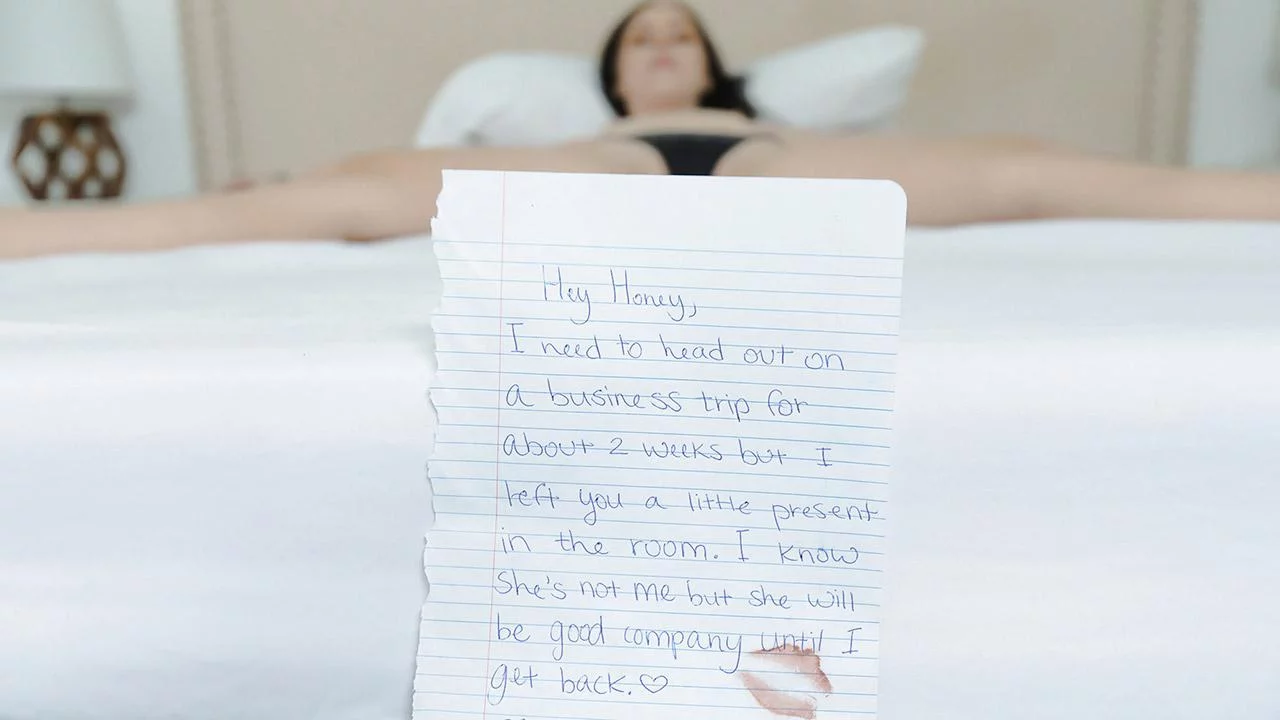 Hey Honey,
I need to head out on
a business trip for
about 2 weeks but I
left you a little present
in the room. I know
she's not me but she will
be good company until I
get back.♡